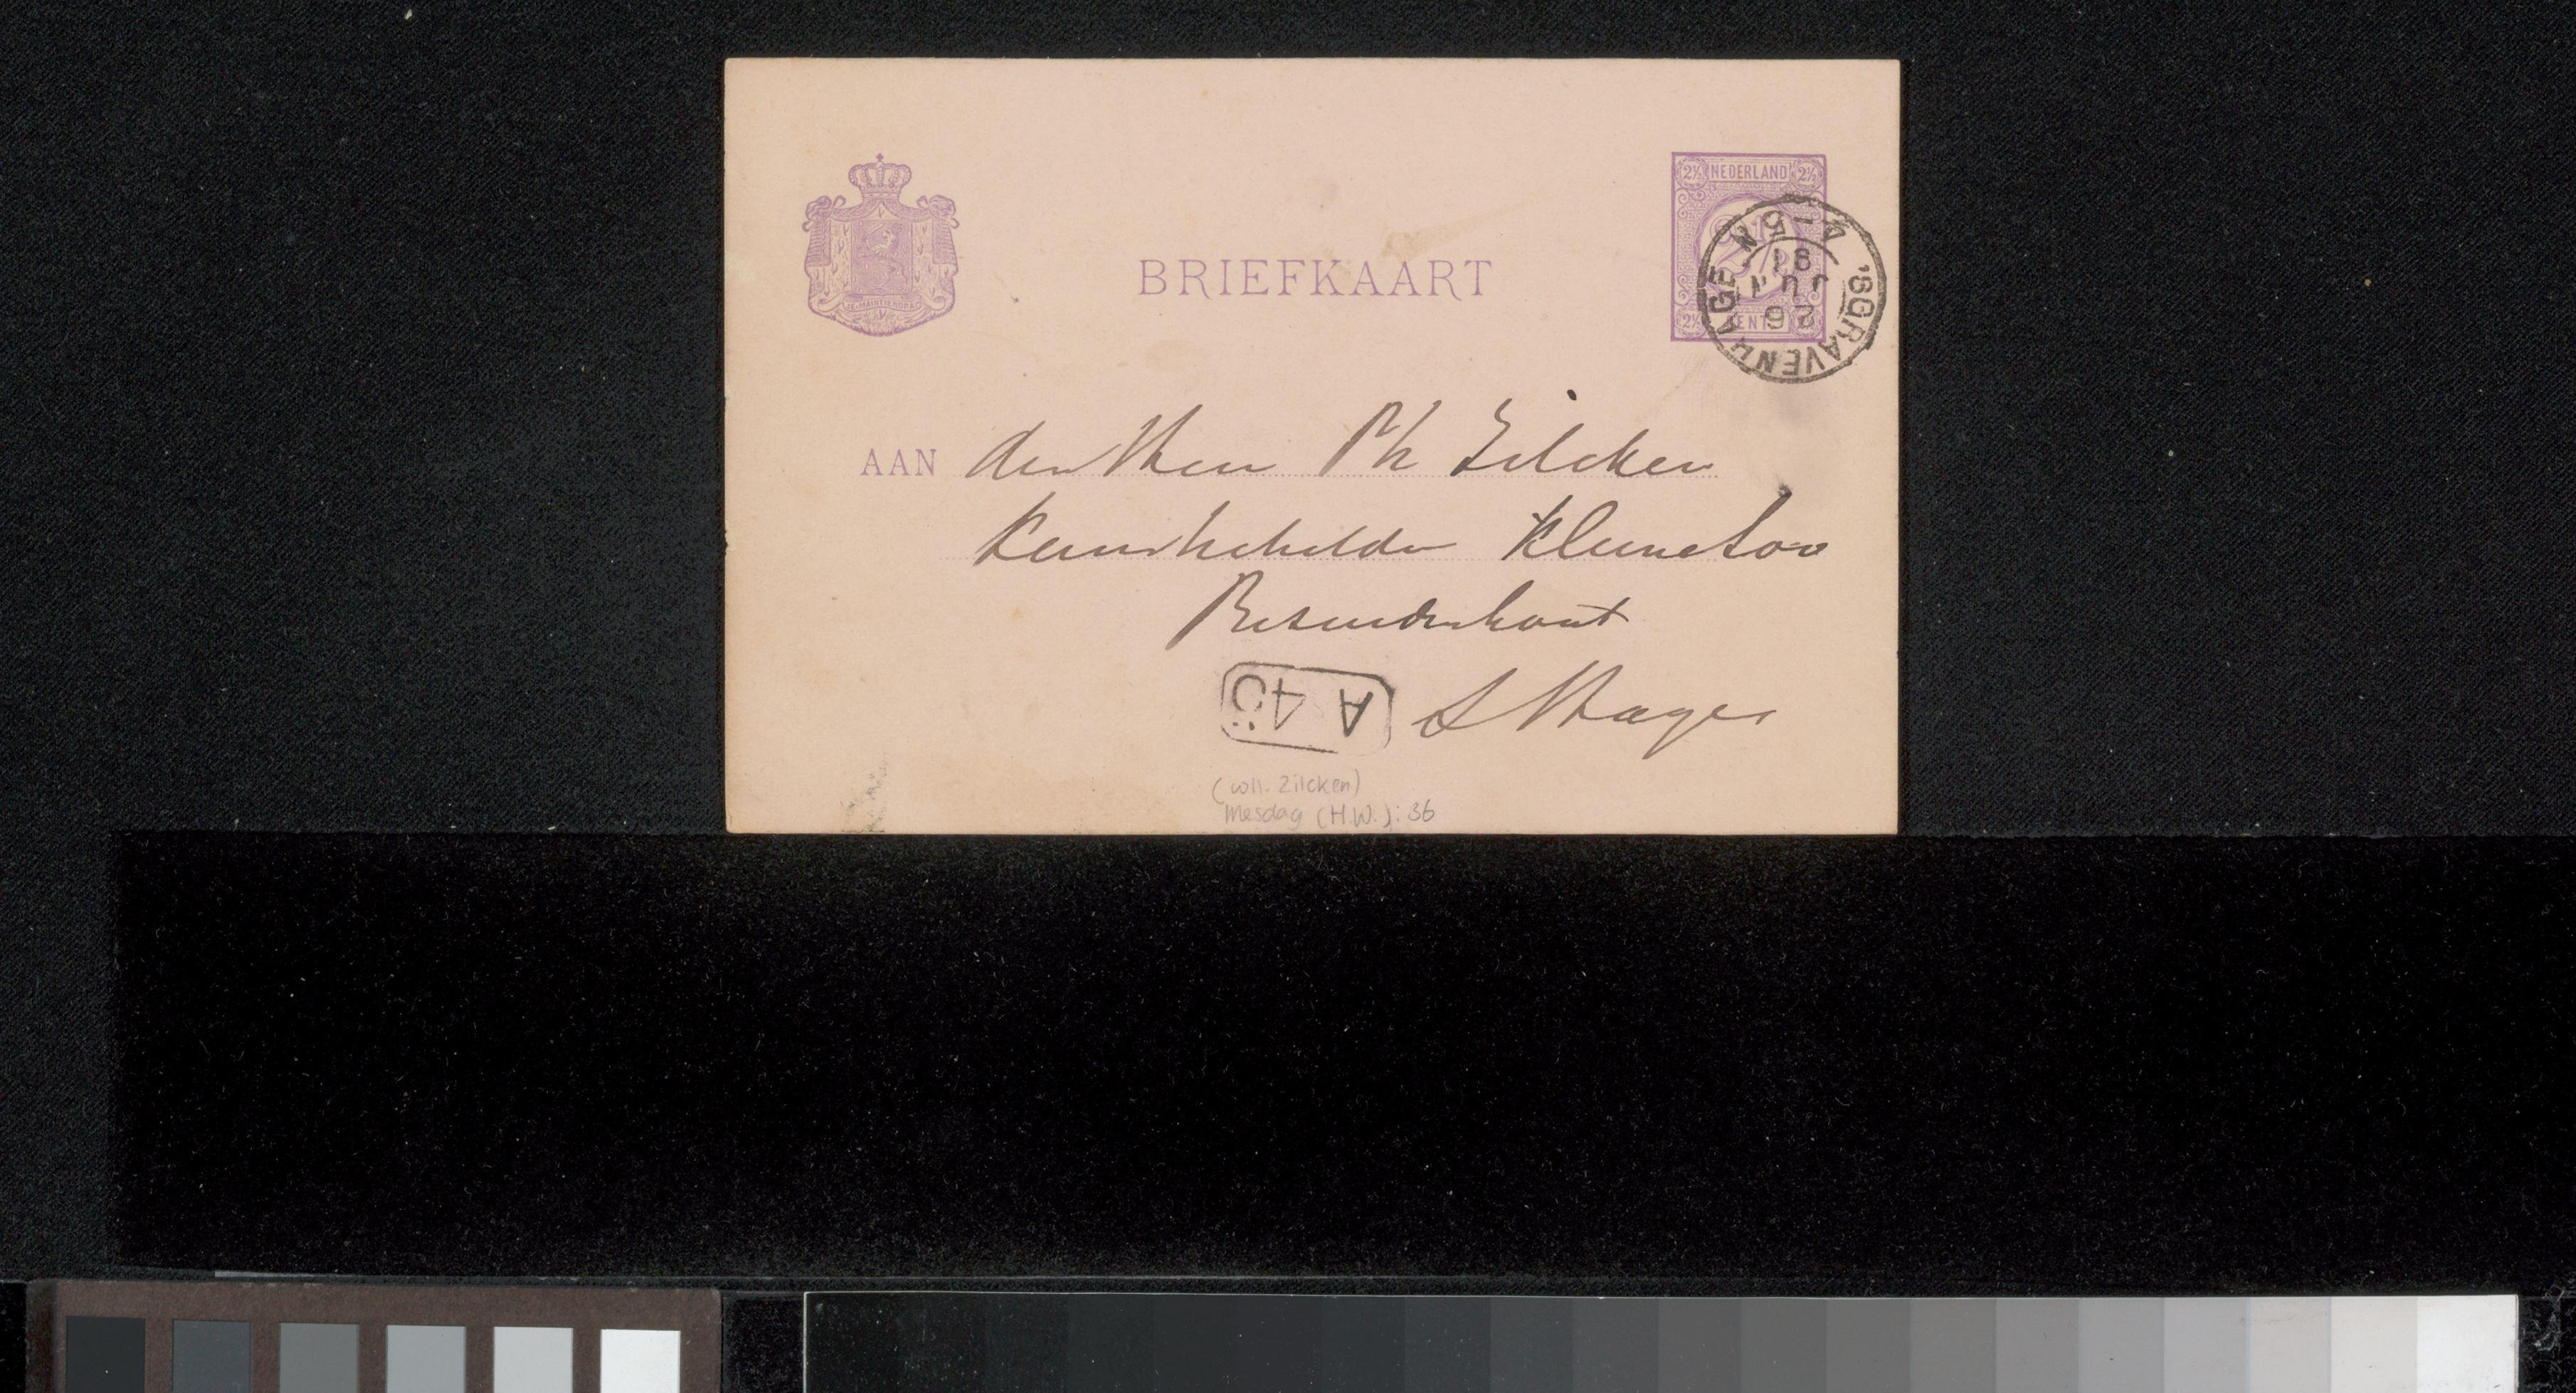 JE MAINTIENDRAI
BRIEFKAART
2½ NEDERLAND 2½
2½ CENT
'SGRAVENHAGE
4-5N
26
JUN
91
AAN den Heer Ph Zilcken
Kunstschilder
Besuidenhout
A 45
S Hage
(coll. Zilcken)
Mesdag (H.W.): 36